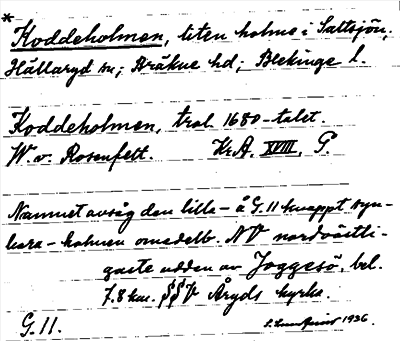 *
Koddeholmen, liten holme i Saltsjön,
Hällaryd sn; Bräkne hd; Blekinge l.
Koddeholmen, trol. 1680-talet.
W. v. Rosenfelt. Kr.A. XVIII, G.
Namnet avsåg den lilla - å G. 11 knappt syn-
bara - holmen omedelb. NV nordvästli-
gaste udden av Joggesö, bel.
7.8 km. SSV Åryds kyrka.
G. 11. 1936.